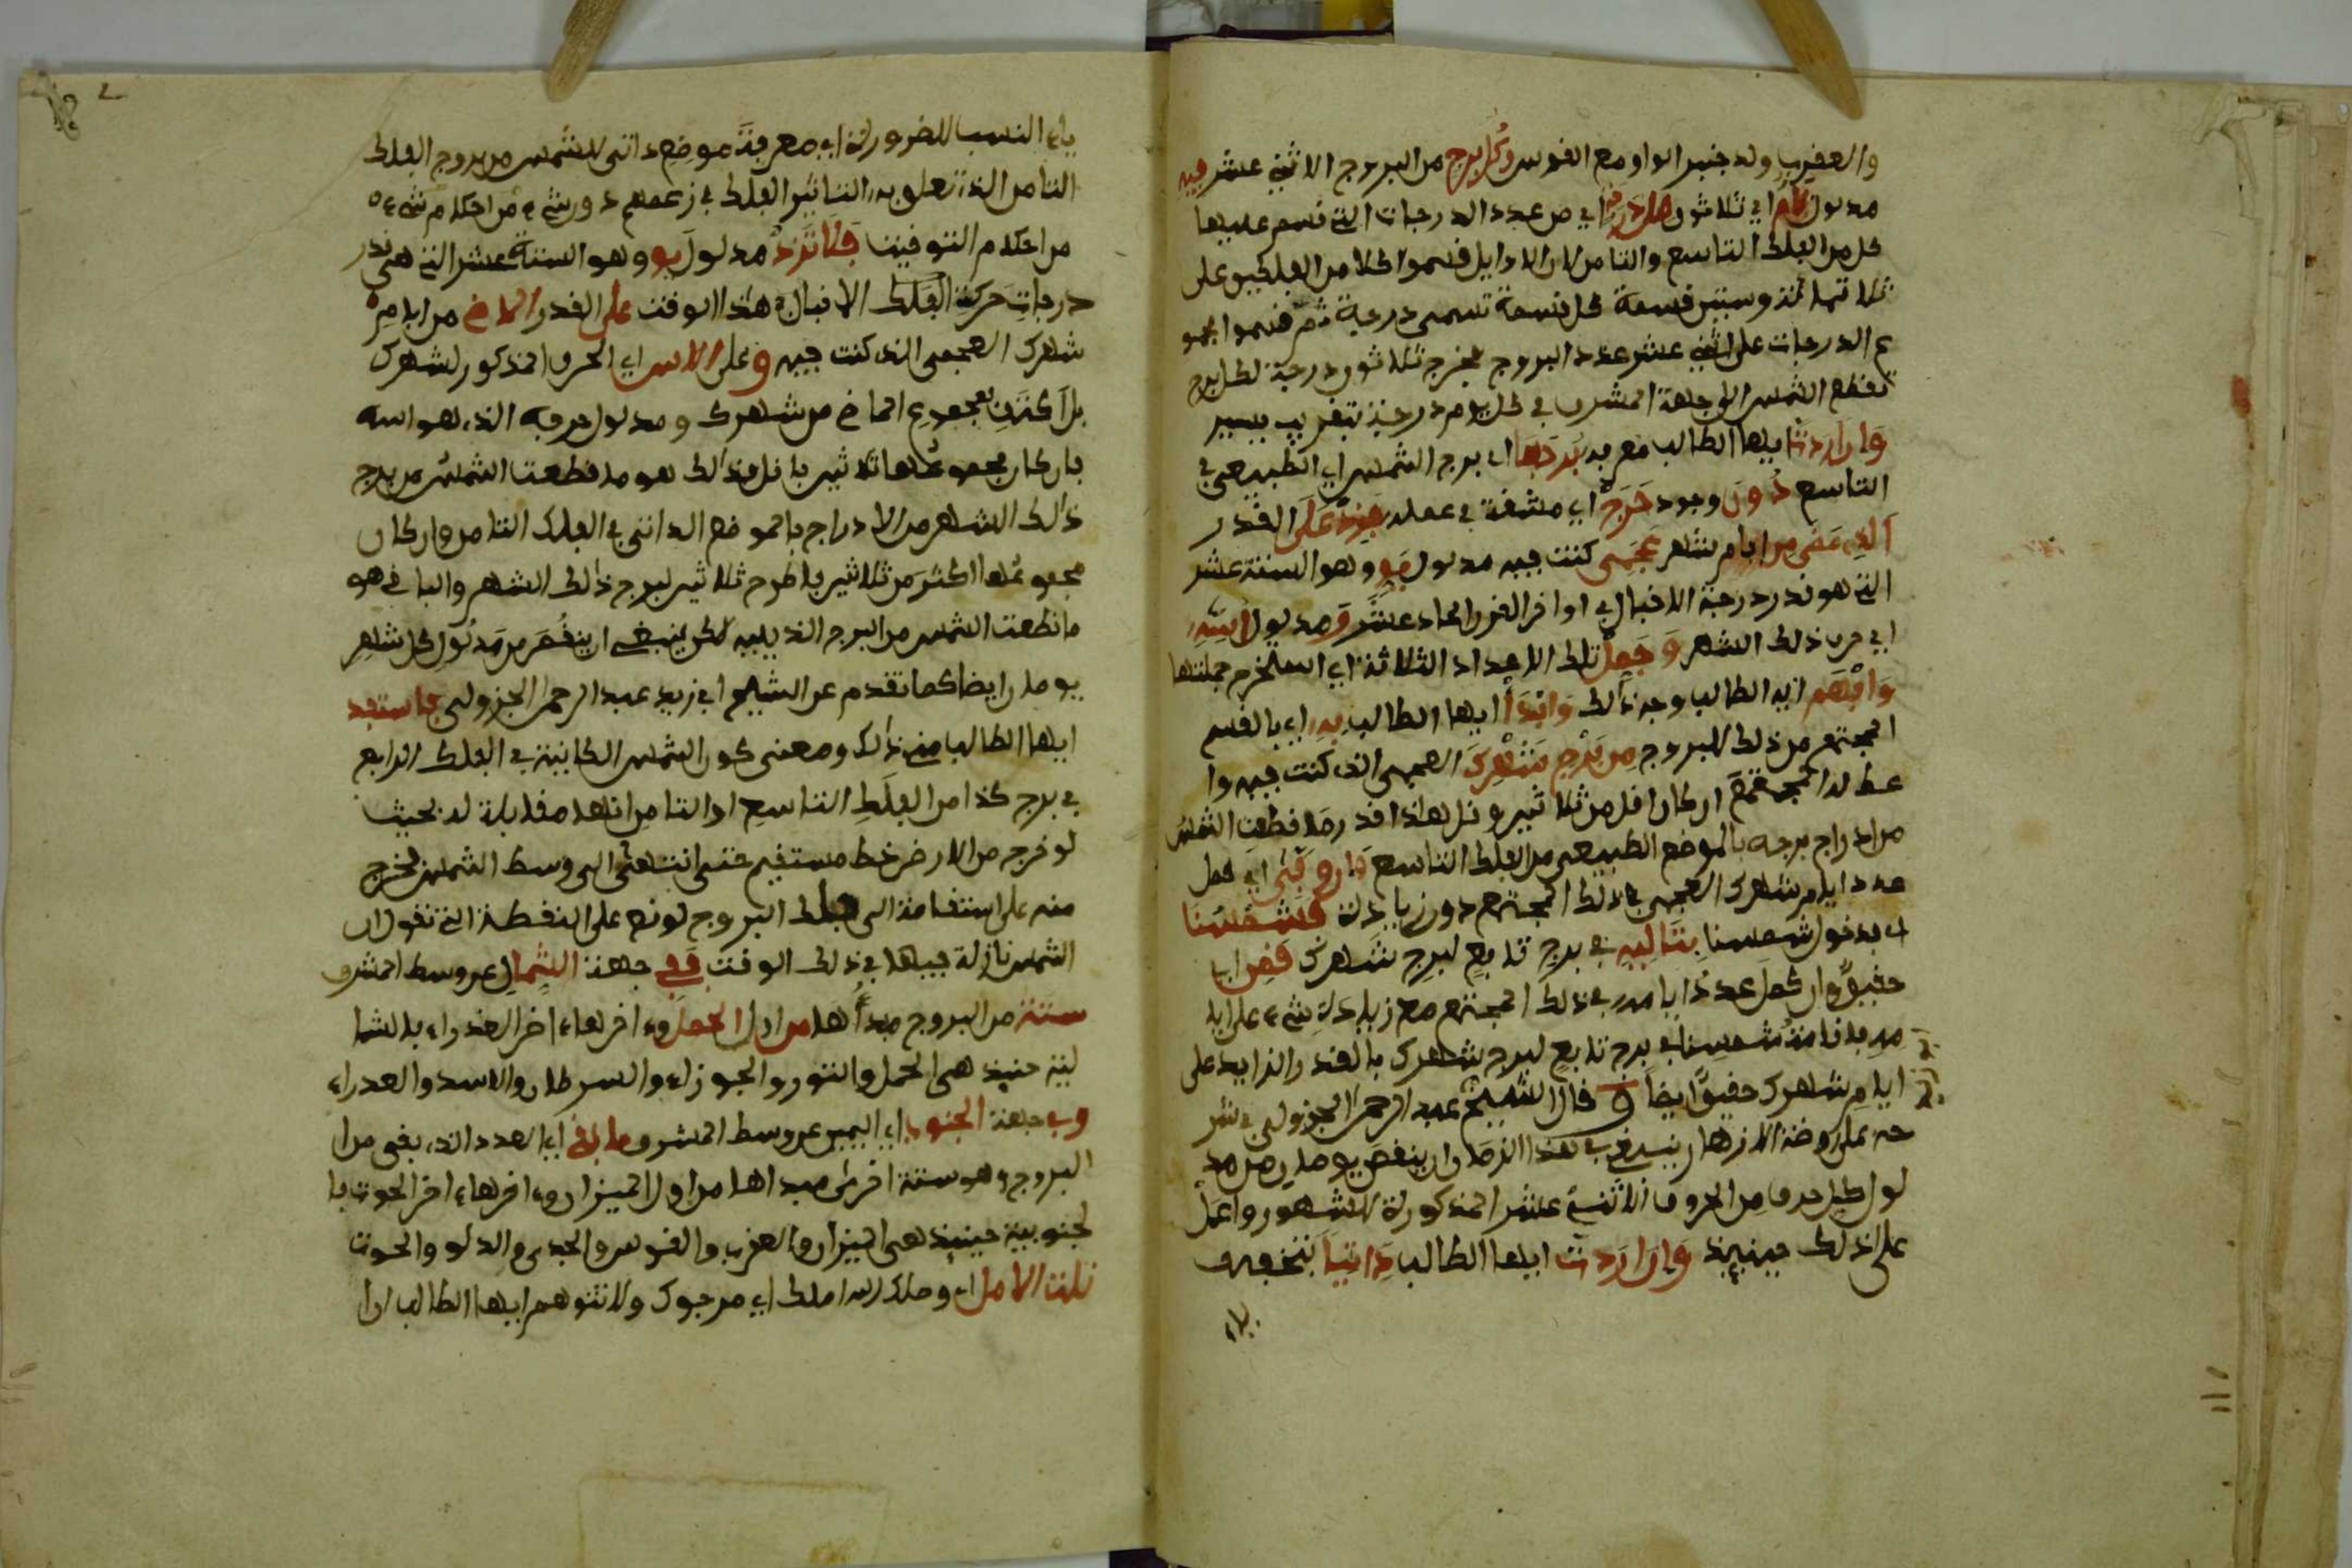 والعقرب وله جنبر الواو مع القوس وكل برج من البروج الاثني عشر فيه
مدلول لام اي ثلاثون من درج اي من عدد الدرجات التي قسم عليها
كل من الفلك التاسع والثامن لان الاوايل قسموا كلا من الفلكين على
ثلاثماية وستين قسمة كل قسمة تسمى درجة ثم قسموا مجمو
ع الدرجات على اثني عشر عدد البروج فخرج ثلاثون درجة لكل برج
تقطع الشمس الى جهة المشرق في كل يوم درجة بتقريب يسير
وان اردت ايها الطالب معرفة برجها اي برج الشمس اي الطبيعي في
التاسع دون وجود حرج اي مشقة في عمله فزد على القدر
الذي مضى من ايام شهر عجمي كنت فيه مدلول يو وهو الستة عشر
التي هو قدر درجة الاقبال في اواخر القرن الحادي عشر ومدلول اسه
اي حرف ذلك الشهر وجمل تلك الاعداد الثلاثة اي استخرج جملتها
وافهم ايه الطالب وجه ذلك وابدأ ايها الطالب به اي بالقسم
المجتمع من ذلك للبروج من برج شهرك العجمي الذي كنت فيه وا
عط لذا المجتمع ان كان اقل من ثلاثين وقل هذا قدر ما قطعت الشمس
من ادراج برجه بالموضع الطبيعي من الفلك التاسع فان وفى اي كمل
عدد ايام شهرك العجمي في ذلك المجتمع دون زيادة فشمسنا
اي بدخول شمسنا بتاليه في برج تابع لبرج شهرك قض ايا
حقيق وان كمل عدد ايامه في ذلك المجتمع مع زيادة شيء على ايا
مه باقامة شمسنا في برج تابع لبرج شهرك بالقدر الزايد على
ايام شهرك حقيق ايضا ق قال الشيخ عبد الرحمن الجزولي في شر
حه على روضة الازهار ينبغي في هذا الزمان ان ينقص يوما من مد
لول كل حرف من الحروف الاثني عشر المذكورة للشهور واعمل
على ذلك حينيذ وان اردت ايها الطالب ذاتيا بتخفيف
ياء
ياء النسب للضرورة اي معرفة موضع ذاتي للشمس من بروج الفلك
الثامن الذي تعلق به التاثير الفلك في زعمهم دون شيء من احكام شيء
من احكام التوقيت فلا تزد مدلول يو وهو الستة عشر التي هي قدر
درجات حركة الفلك الاقبال في هذا الوقت على القدر الماض من ايام
شهرك العجمي الذي كنت فيه وعلى الاس اي الحرف المذكور لشهرك
بل اكتف بمجموع الماض من شهرك ومدلول حرفه الذي هو اسه
فان كان مجموعهما ثلاثين فاقل فذلك هو ما قطعت الشمس من برج
ذلك الشهر من الادراج بالموضع الذاتي في الفلك الثامن وان كان
مجموعهما اكثر من ثلاثين فاطرح ثلاثين لبرج ذلك الشهر والباقي هو
ما قطعت الشمس من البرج الذي يليه لكن ينبغي ان ينقص من مدلول كل شهر
يوما ايضا كما تقدم عن الشيخ ابي زيد عبد الرحمن الجزولي فاستفد
ايها الطالب مني ذلك ومعنى كون الشمس الكاينة في الفلك الرابع
في برج كذا من الفلك التاسع او الثامن انها مقابلة له بحيث
لو خرج من الارض خط مستقيم حتى انتهى الى وسط الشمس فخرج
منه على استقامة الى فلك البروج لوقع على النقطة التي تقول ان
الشمس نازلة فيها في ذلك الوقت ففي جهة الشمال عن وسط المشرق
ستة من البروج مبدأها من اول الحمل وءاخرها ءاخر العذراء بالشما
لية حينيذ هي الحمل والثور والجوزاء والسرطان والاسد والعذراء
وفي جهة الجنوب اي اليمين عن وسط المشرق ما بقي اي العدد الذي بقي من ا
البروج وهو ستة اخرى مبداها من اول الميزان وءاخرها ءاخر الحوت با
لجنوبية حينيذ هي الميزان والعقرب والقوس والجدي والدلو والحوت
نلت الامل اي وصلك الله املك اي مرجوك ولا تتوهم ايها الطالب ان ا